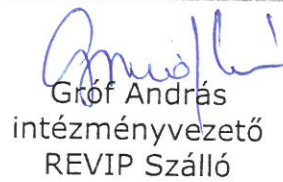 Gróf András
intézményvezető
REVIP Szálló